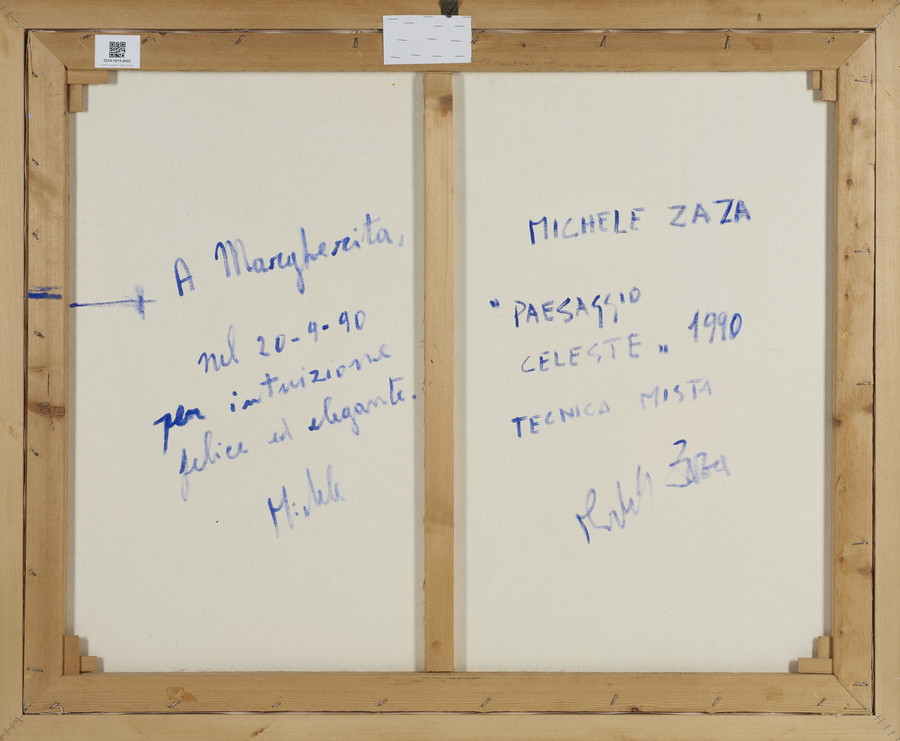 A Margherita,
nel 20-9-90
per intuizione
felice ed elegante.
Michele
MICHELE ZAZA
"PAESAGGIO
CELESTE" 1990
TECNICA MISTA
Michele Zaza